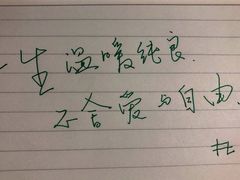 一生温暖纯良.
不舍爱与自由.